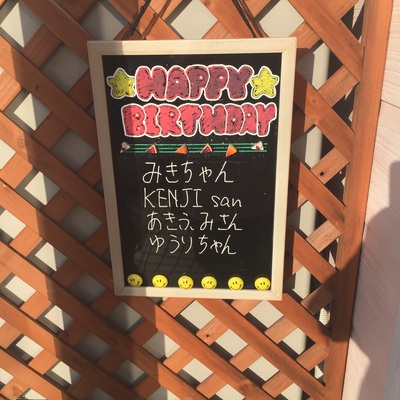 HAPPY
BIRTHDAY
みきちゃん
KENJI san
あきふみさん
ゆうりちゃん